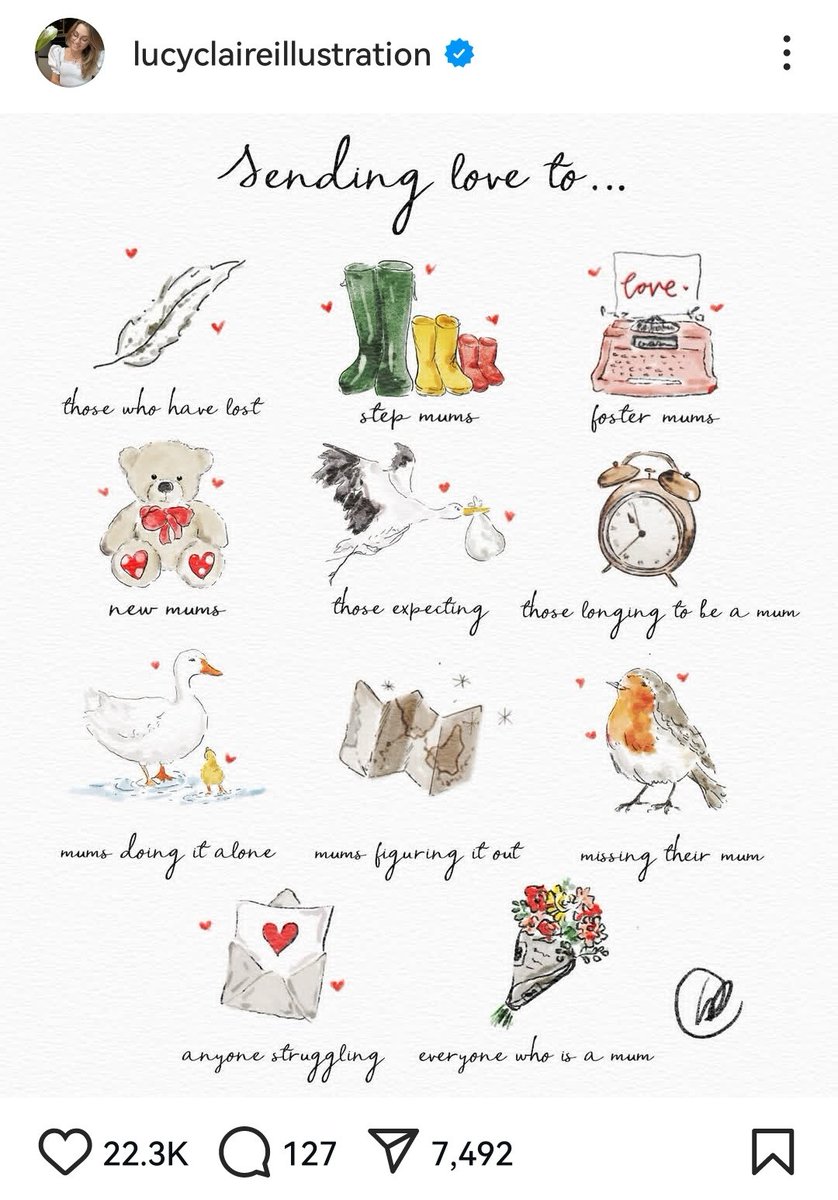 lucyclaireillustration
Sending love to...
love.
those who have lost
step mums
foster mums
new mums
those expecting
those longing to be a mum
mums doing it alone
mums figuring it out
missing their mum
anyone struggling
everyone who is a mum
22.3K
127
7,492